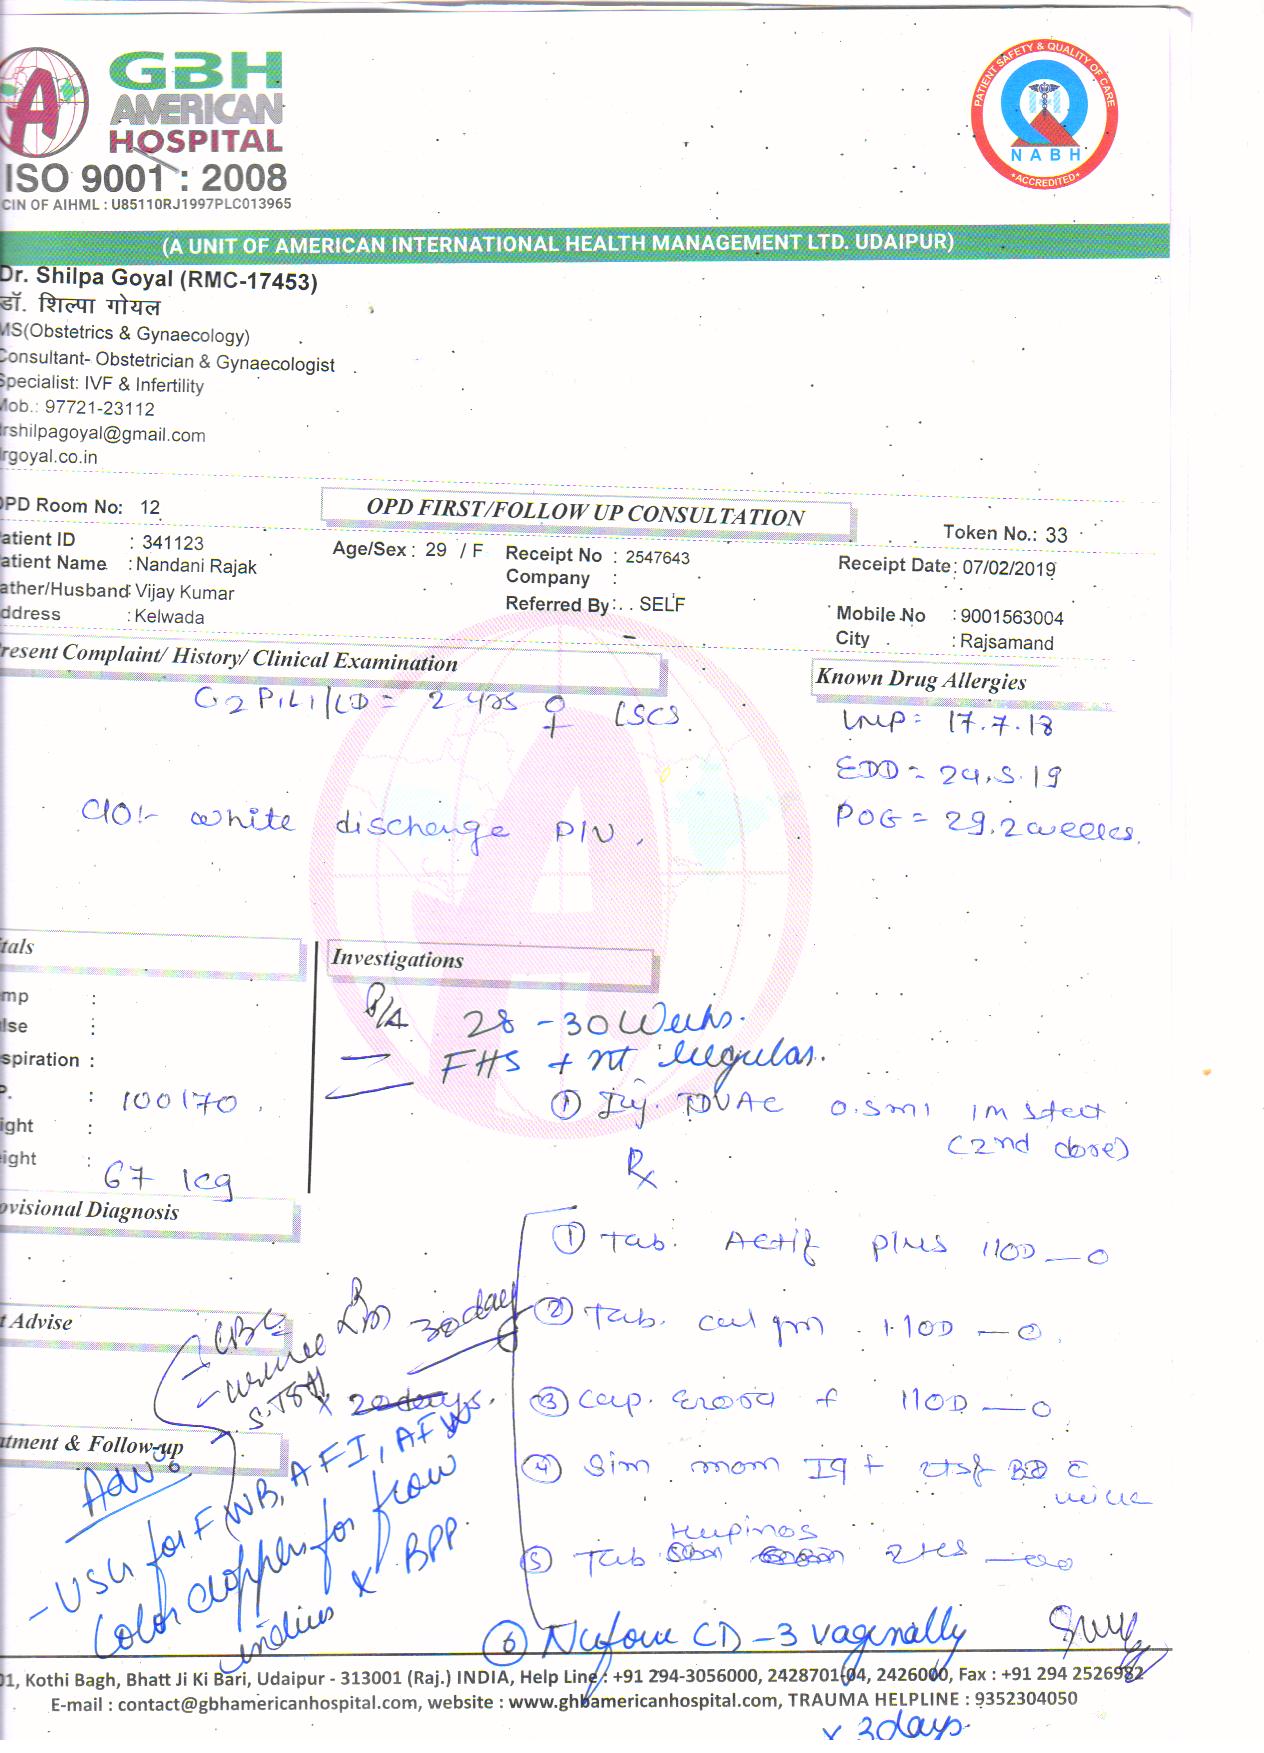 GBH
AMERICAN
HOSPITAL
ISO 9001 : 2008
CIN OF AIHML : U85110RJ1997PLC013965
PATIENT SAFETY & QUALITY OF CARE
NABH
ACCREDITED
(A UNIT OF AMERICAN INTERNATIONAL HEALTH MANAGEMENT LTD. UDAIPUR)
Dr. Shilpa Goyal (RMC-17453)
डॉ. शिल्पा गोयल
MS(Obstetrics & Gynaecology)
Consultant- Obstetrician & Gynaecologist
Specialist: IVF & Infertility
Mob.: 97721-23112
rshilpagoyal@gmail.com
rgoyal.co.in
OPD Room No: 12
OPD FIRST/FOLLOW UP CONSULTATION
Token No.: 33
atient ID : 341123 Age/Sex : 29 / F Receipt No : 2547643 Receipt Date : 07/02/2019
atient Name : Nandani Rajak Company :
ather/Husband : Vijay Kumar Referred By : . . SELF Mobile No : 9001563004
ddress : Kelwada City : Rajsamand
resent Complaint/ History/ Clinical Examination
Known Drug Allergies
G2P1L1/LD = 2 yrs ♀ LSCS.
LMP = 17.7.18
EDD = 24.5.19
POG = 29.2 weeks.
C/O:- white discharge P/V.
tals
Investigations
mp :
lse :
spiration :
P. : 100/70.
ight :
eight : 67 kg
P/A 28 - 30 Weeks.
FHS + nt regular.
① Inj. TDVAC 0.5ml IM stat
(2nd dose)
Rx
ovisional Diagnosis
① Tab. Actif plus 1 OD — 0
② Tab. cal 1 OD — 0.
③ Cap. 1 OD — 0
④ mom BD c
⑤ Tab
⑥ CD - 3 vaginally
x 3 days.
30 day
x 20 days.
t Advise
- CBC
- urine
S. TSH
atment & Follow-up
Adv:
- USG for FWB, AFI, AFW
Color doppler for flow
x BPP.
01, Kothi Bagh, Bhatt Ji Ki Bari, Udaipur - 313001 (Raj.) INDIA, Help Line : +91 294-3056000, 2428701-04, 2426000, Fax : +91 294 2526982
E-mail : contact@gbhamericanhospital.com, website : www.ghbamericanhospital.com, TRAUMA HELPLINE : 9352304050